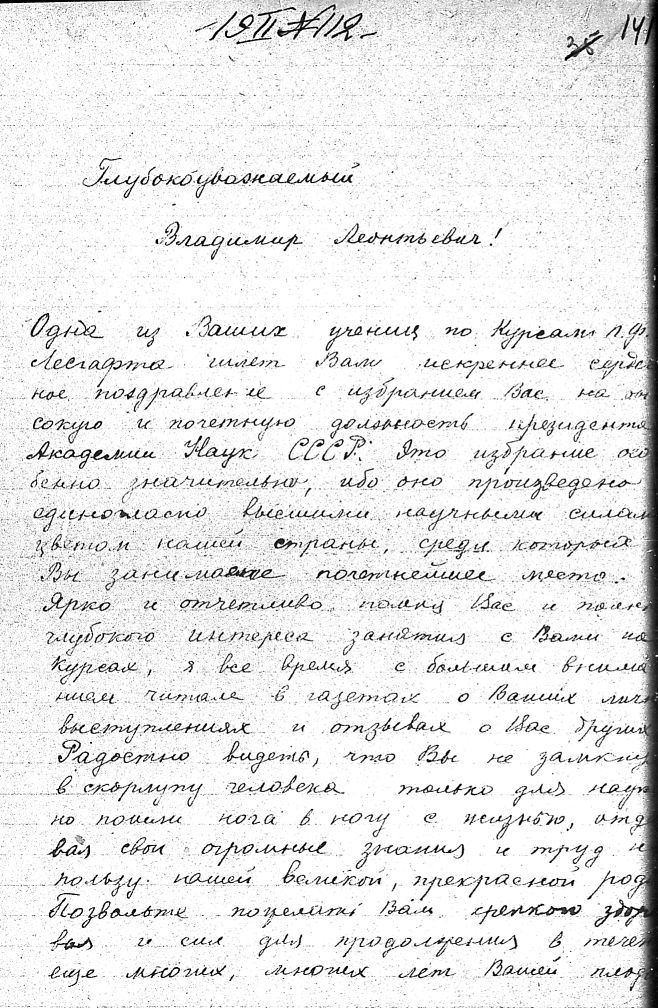 -19 II № 112-
141
Глубокоуважаемый
Владимир Леонтьевич!
Одна из Ваших учениц по Курсам П.Ф.
Лесгафта шлет Вам искреннее сердеч
ное поздравление с избранием Вас на вы
сокую и почетную должность президента
Академии Наук СССР. Это избрание осо
бенно значительно, ибо оно произведено
единогласно высшими научными силами
цветом нашей страны, среди которых
Вы занимаете почетнейшее место.
Ярко и отчетливо помня Вас и полные
глубокого интереса занятия с Вами на
курсах, я все время с большим внима
нием читала в газетах о Ваших личн
выступлениях и отзывах о Вас других
Радостно видеть, что Вы не замкну
в скорлупу человека только для наук
но пошли нога в ногу с жизнью, отда
вая свои огромные знания и труд н
пользу нашей великой, прекрасной род
Позвольте пожелать Вам крепкого здоро
вья и сил для продолжения в течен
еще многих, многих лет Вашей плод